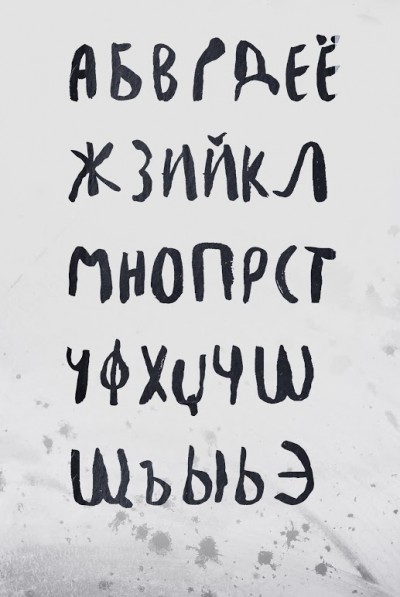 АБВГДЕЁ
ЖЗИЙКЛ
МНОПРСТ
УФХЦЧШ
ЩЪЫЬЭ